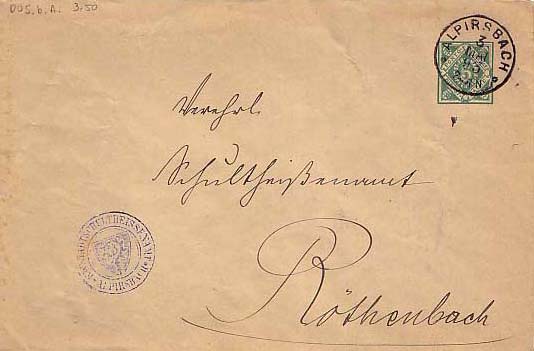 DOS. b. A. 3.50
ALPIRSBACH
3
Verehrl.
Schultheißenamt
Röthenbach
SCHULTHEISSENAMT
ALPIRSBACH